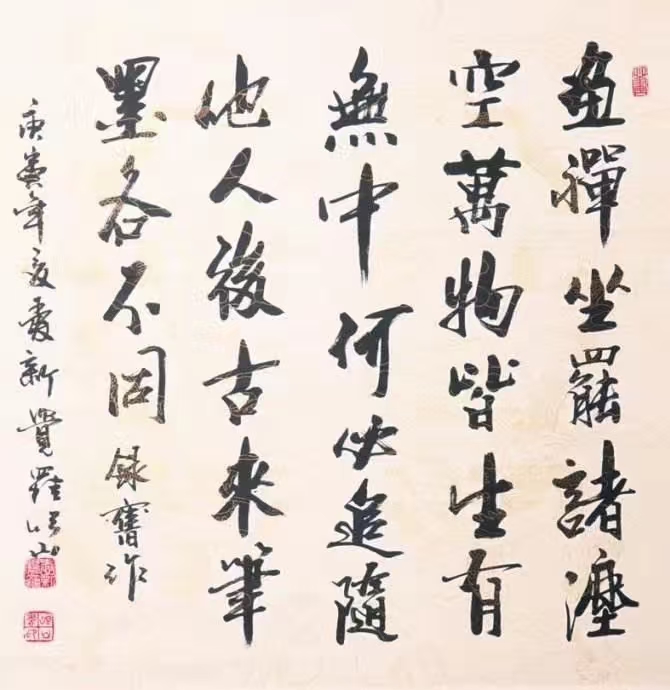 畫禪坐罷諸
空萬物皆生有
無中何必追隨
他人後古來筆
墨各不同 錄舊作
庚寅年夏愛新覺羅山